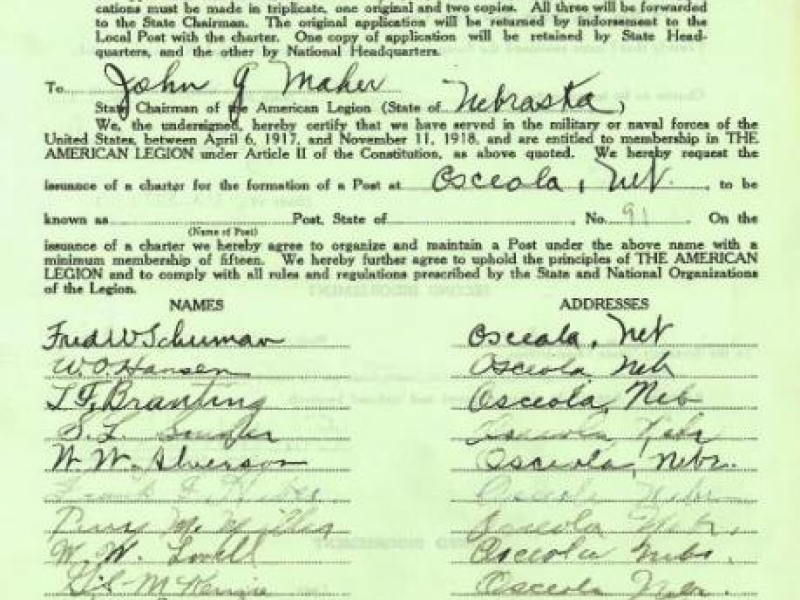 cations must be made in triplicate, one original and two copies. All three will be forwarded
to the State Chairman. The original application will be returned by indorsement to the
Local Post with the charter. One copy of application will be retained by State Head-
quarters, and the other by National Headquarters.
To John G Maher
State Chairman of the American Legion (State of Nebraska)
We, the undersigned, hereby certify that we have served in the military or naval forces of the
United States, between April 6, 1917, and November 11, 1918, and are entitled to membership in THE
AMERICAN LEGION under Article II of the Constitution, as above quoted. We hereby request the
issuance of a charter for the formation of a Post at Osceola, Neb. to be
known as Post, State of , No. 91 On the
(Name of Post)
issuance of a charter we hereby agree to organize and maintain a Post under the above name with a
minimum membership of fifteen. We hereby further agree to uphold the principles of THE AMERICAN
LEGION and to comply with all rules and regulations prescribed by the State and National Organizations
of the Legion.
NAMES ADDRESSES
Fred W Schuman Osceola, Neb
W. O. Hansen Osceola Neb
T. F. Branting Osceola, Neb
S. L. Osceola Nebr
W. W. Alverson Osceola, Nebr.
Frank Osceola Nebr
Percy M. Osceola Nebr.
W. W. Lovell Osceola Nebr.
McKenzie Osceola Nebr.